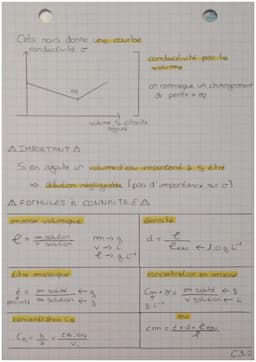 Cela nous donne une courbe
conductivité σ
conductivité par le
volume
on remarque un changement
de pente = eq
eq
volume S titrante
ajouté
△ IMPORTANT △
Si on ajoute un volume d'eau important à S titré
=> dilution négligeable (pas d'importance sur σ)
△ FORMULES À CONNAITRE △
masse volumique
densité
ρ = m solution / V solution
m → g
V → L
ρ → g.L⁻¹
d = ρ / ρ eau ← 1.0 g.L⁻¹
titre massique
concentration en masse
t = m soluté ← g / m solution ← g
Cm = m soluté ← g / V solution ← L
g.L⁻¹
concentration CB
ou
Cm = t × d × ρ eau
C3.2